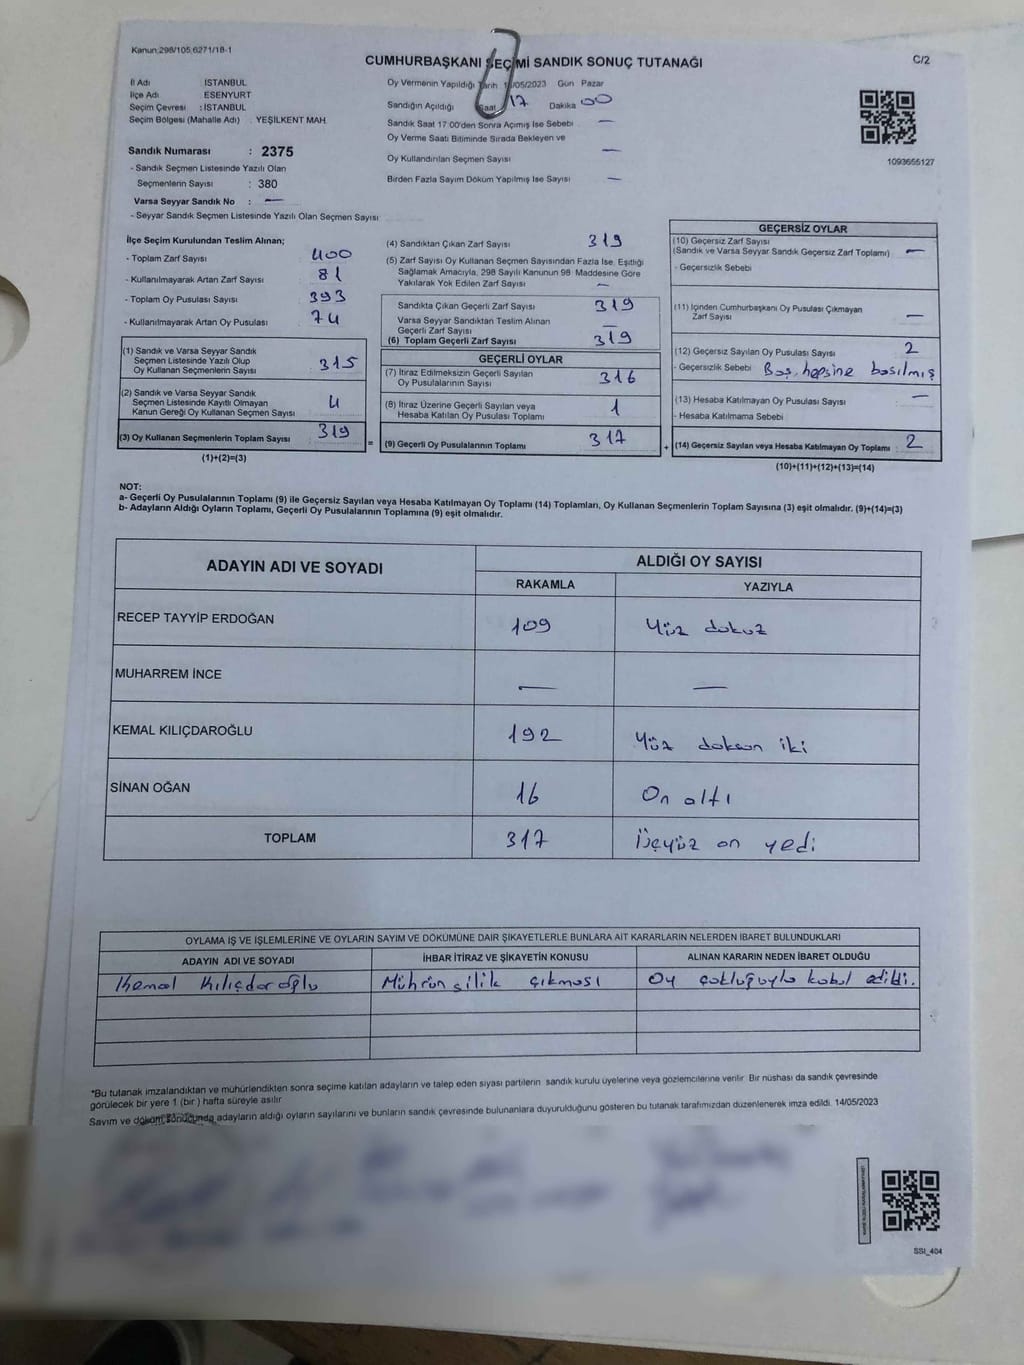 Kanun:298/105,6271/18-1
CUMHURBAŞKANI SEÇİMİ SANDIK SONUÇ TUTANAĞI
C/2
İl Adı İSTANBUL
İlçe Adı ESENYURT
Seçim Çevresi : İSTANBUL
Seçim Bölgesi (Mahalle Adı) : YEŞİLKENT MAH.
Oy Vermenin Yapıldığı Tarih /05/2023 Gün Pazar
Sandığın Açıldığı Saat 17 Dakika 00
Sandık Saat 17:00'den Sonra Açımış İse Sebebi —
Oy Verme Saati Bitiminde Sırada Bekleyen ve
Oy Kullandırılan Seçmen Sayısı —
Birden Fazla Sayım Döküm Yapılmış İse Sayısı —
1093655127
Sandık Numarası : 2375
- Sandık Seçmen Listesinde Yazılı Olan
Seçmenlerin Sayısı : 380
Varsa Seyyar Sandık No : —
- Seyyar Sandık Seçmen Listesinde Yazılı Olan Seçmen Sayısı
İlçe Seçim Kurulundan Teslim Alınan;
- Toplam Zarf Sayısı 400
- Kullanılmayarak Artan Zarf Sayısı 81
- Toplam Oy Pusulası Sayısı 393
- Kullanılmayarak Artan Oy Pusulası 74
(1) Sandık ve Varsa Seyyar Sandık
Seçmen Listesinde Yazılı Olup
Oy Kullanan Seçmenlerin Sayısı 315
(2) Sandık ve Varsa Seyyar Sandık
Seçmen Listesinde Kayıtlı Olmayan
Kanun Gereği Oy Kullanan Seçmen Sayısı 4
(3) Oy Kullanan Seçmenlerin Toplam Sayısı 319
(1)+(2)=(3)
(4) Sandıktan Çıkan Zarf Sayısı 319
(5) Zarf Sayısı Oy Kullanan Seçmen Sayısından Fazla İse, Eşitliği
Sağlamak Amacıyla, 298 Sayılı Kanunun 98. Maddesine Göre
Yakılarak Yok Edilen Zarf Sayısı —
Sandıkta Çıkan Geçerli Zarf Sayısı 319
Varsa Seyyar Sandıktan Teslim Alınan
Geçerli Zarf Sayısı —
(6) Toplam Geçerli Zarf Sayısı 319
GEÇERLİ OYLAR
(7) İtiraz Edilmeksizin Geçerli Sayılan
Oy Pusulalarının Sayısı 316
(8) İtiraz Üzerine Geçerli Sayılan veya
Hesaba Katılan Oy Pusulası Toplamı 1
= (9) Geçerli Oy Pusulalarının Toplamı 317
GEÇERSİZ OYLAR
(10) Geçersiz Zarf Sayısı
(Sandık ve Varsa Seyyar Sandık Geçersiz Zarf Toplamı) —
- Geçersizlik Sebebi
(11) İçinden Cumhurbaşkanı Oy Pusulası Çıkmayan
Zarf Sayısı —
(12) Geçersiz Sayılan Oy Pusulası Sayısı 2
- Geçersizlik Sebebi Boş, hepsine basılmış
(13) Hesaba Katılmayan Oy Pusulası Sayısı —
- Hesaba Katılmama Sebebi
+ (14) Geçersiz Sayılan veya Hesaba Katılmayan Oy Toplamı 2
(10)+(11)+(12)+(13)=(14)
NOT:
a- Geçerli Oy Pusulalarının Toplamı (9) ile Geçersiz Sayılan veya Hesaba Katılmayan Oy Toplamı (14) Toplamları, Oy Kullanan Seçmenlerin Toplam Sayısına (3) eşit olmalıdır. (9)+(14)=(3)
b- Adayların Aldığı Oyların Toplamı, Geçerli Oy Pusulalarının Toplamına (9) eşit olmalıdır.
ADAYIN ADI VE SOYADI
ALDIĞI OY SAYISI
RAKAMLA YAZIYLA
RECEP TAYYİP ERDOĞAN 109 Yüz dokuz
MUHARREM İNCE — —
KEMAL KILIÇDAROĞLU 192 Yüz doksan iki
SİNAN OĞAN 16 On altı
TOPLAM 317 Üçyüz on yedi
OYLAMA İŞ VE İŞLEMLERİNE VE OYLARIN SAYIM VE DÖKÜMÜNE DAİR ŞİKAYETLERLE BUNLARA AİT KARARLARIN NELERDEN İBARET BULUNDUKLARI
ADAYIN ADI VE SOYADI İHBAR İTİRAZ VE ŞİKAYETİN KONUSU ALINAN KARARIN NEDEN İBARET OLDUĞU
Kemal Kılıçdaroğlu Mührün silik çıkması Oy çokluğuyla kabul edildi.
*Bu tutanak imzalandıktan ve mühürlendikten sonra seçime katılan adayların ve talep eden siyasi partilerin sandık kurulu üyelerine veya gözlemcilerine verilir. Bir nüshası da sandık çevresinde
görülecek bir yere 1 (bir ) hafta süreyle asılır
Sayım ve döküm sonucunda adayların aldığı oyların sayılarını ve bunların sandık çevresinde bulunanlara duyurulduğunu gösteren bu tutanak tarafımızdan düzenlenerek imza edildi. 14/05/2023
SSI_404